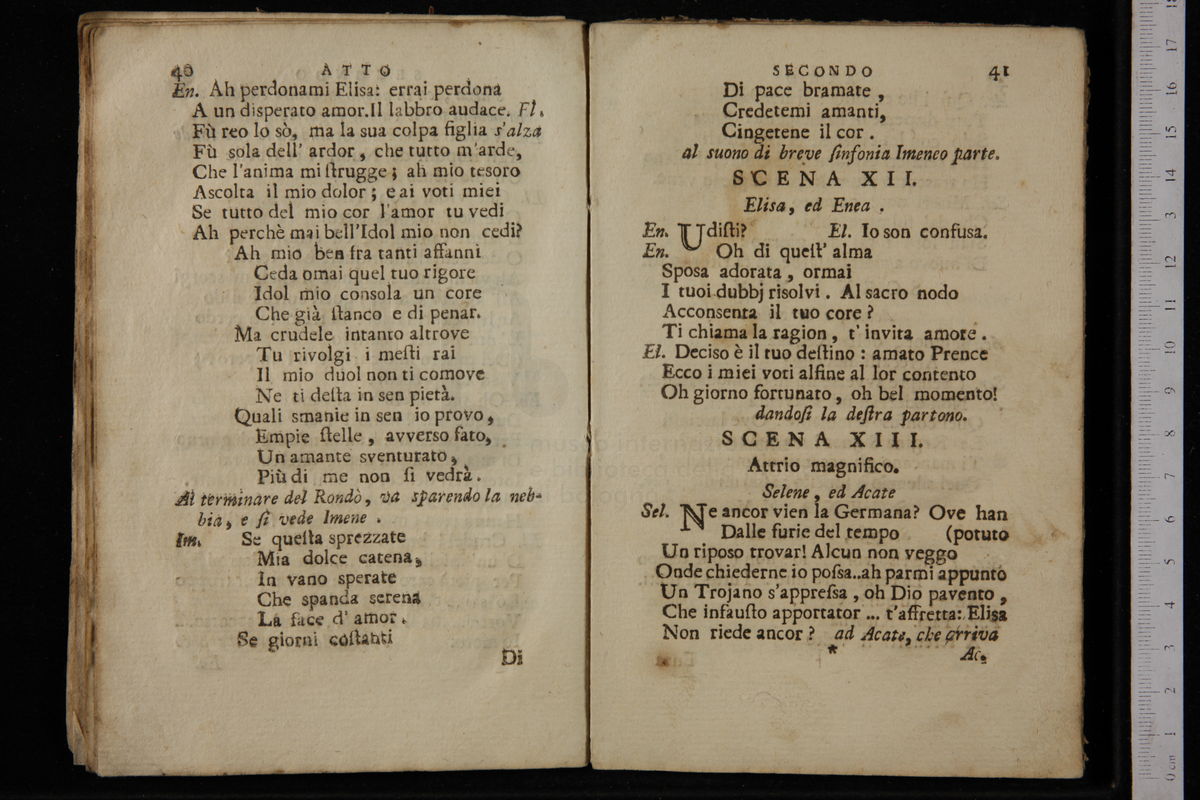 40 ATTO
En. Ah perdonami Elisa: errai perdona
A un disperato amor.Il labbro audace. El.
Fù reo lo sò, ma la sua colpa figlia s'alza
Fù sola dell' ardor, che tutto m'arde,
Che l'anima mi ſtrugge; ah mio tesoro
Ascolta il mio dolor; e ai voti miei
Se tutto del mio cor l'amor tu vedi
Ah perchè mai bell'Idol mio non cedi?
Ah mio ben fra tanti affanni
Ceda omai quel tuo rigore
Idol mio consola un core
Che già ſtanco e di penar.
Ma crudele intanto altrove
Tu rivolgi i meſti rai
Il mio duol non ti comove
Ne ti deſta in sen pietà.
Quali smanie in sen io provo,
Empie ſtelle, avverso fato,
Un amante sventurato,
Più di me non ſi vedrà.
Al terminare del Rondò, va sparendo la neb-
bia, e ſi vede Imene .
Im. Se queſta sprezzate
Mia dolce catena,
In vano sperate
Che spanda serena
La face d' amor.
Se giorni coſtanti
Di
SECONDO 41
Di pace bramate ,
Credetemi amanti,
Cingetene il cor .
al suono di breve ſinfonia Imeneo parte.
SCENA XII.
Elisa, ed Enea .
En. Udiſti? El. Io son confusa.
En. Oh di queſt' alma
Sposa adorata , ormai
I tuoi dubbj risolvi . Al sacro nodo
Acconsenta il tuo core ?
Ti chiama la ragion , t' invita amore .
El. Deciso è il tuo deſtino : amato Prence
Ecco i miei voti alfine al lor contento
Oh giorno fortunato, oh bel momento!
dandoſi la deſtra partono.
SCENA XIII.
Attrio magnifico.
Selene, ed Acate
Sel. Ne ancor vien la Germana? Ove han
Dalle furie del tempo (potuto
Un riposo trovar! Alcun non veggo
Onde chiederne io poſsa..ah parmi appunto
Un Trojano s'appreſsa , oh Dio pavento ,
Che infauſto apportator ... t'affretta: Elisa
Non riede ancor ? ad Acate, che arriva
* Ac.